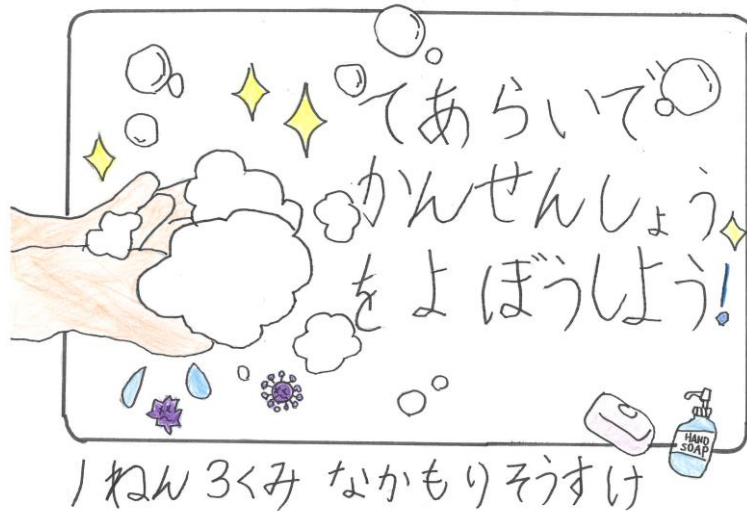 てあらいで
かんせんしょう
をよぼうしよう!
HAND
SOAP
1ねん3くみ なかもりそうすけ